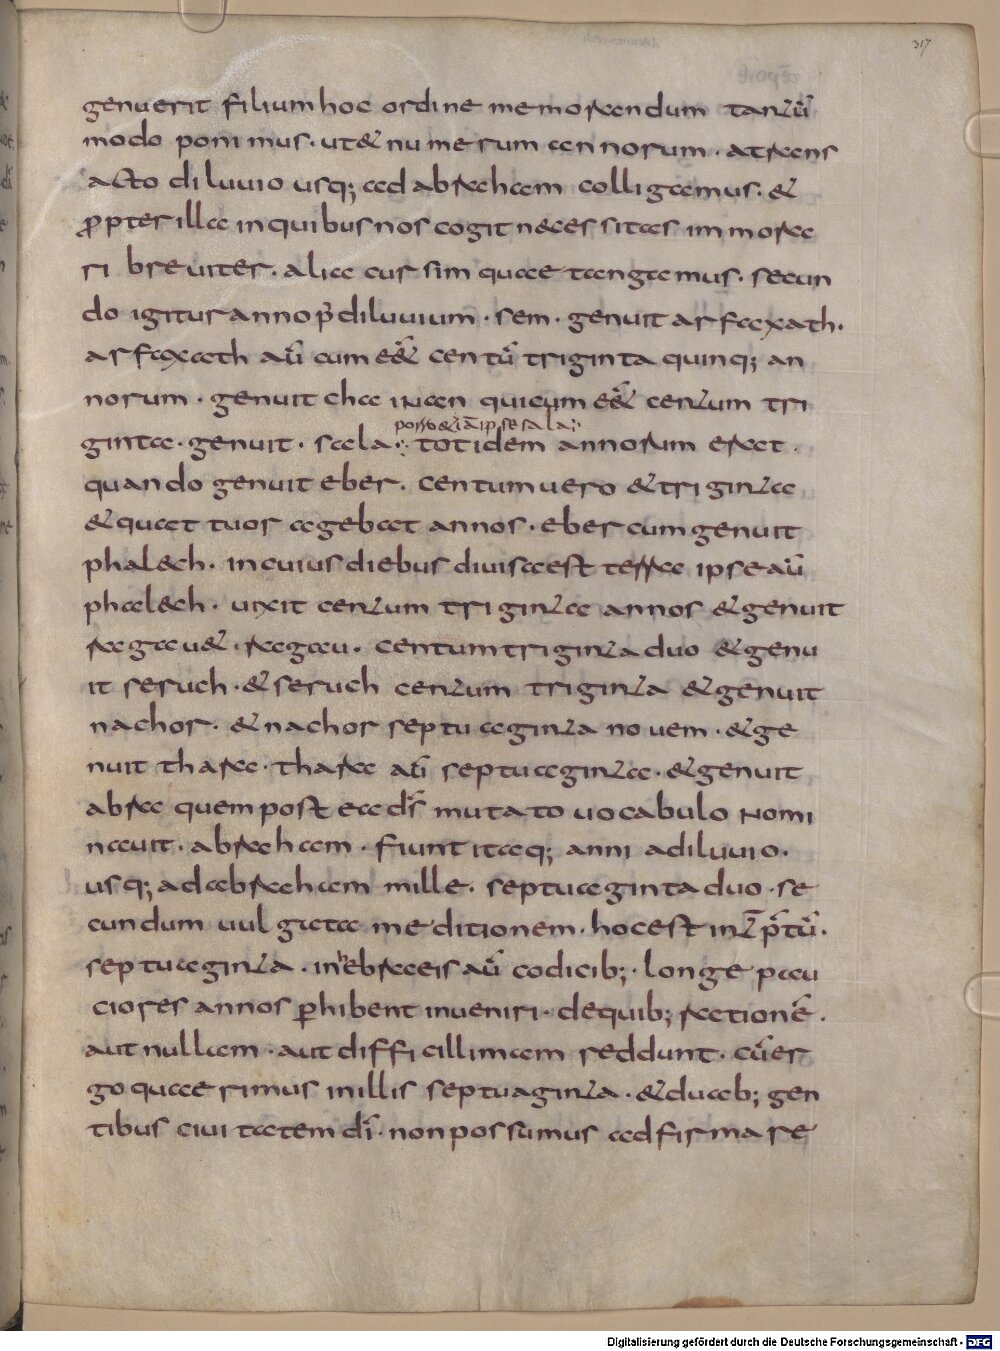 317
genuerit filium hoc ordine memorandum tantū
modo ponimus · ut & numerum annorum · atrans
acto diluuio usq; ad abraham colligamus · &
ꝓpter illa in quibus nos cogit necessitas immora
ri breuiter · alia cursim quae tangamus · secun
do igitur anno p̄ diluuium · sem · genuit arfaxath ·
arfaxath aū cum eē& centū triginta quinq; an
norum · genuit chainan qui cum eē& centum tri
porro & iā ipse sala
ginta · genuit · sala · totidem annorum erat ·
quando genuit eber · centum uero & triginta
& quattuor agebat annos · eber cum genuit
phal&h · in cuius diebus diuisa est terra ipse aū
phal&h · uixit centum triginta annos & genuit
ragau & · ragau · centum triginta duo & genu
it seruch · & seruch centum triginta & genuit
nachor · & nachor septuaginta nouem · & ge
nuit thara · thara aū septuaginta · & genuit
abra quem postea ds̄ mutato uocabulo nomi
nauit · abraham · fiunt itaq; anni a diluuio ·
usq; ad abraham mille · septuaginta duo · se
cundum uulgatam editionem · hoc est int̄p̄tū ·
septuaginta · in hebraeis aū codicib; · longe pau
ciores annos ꝑhibent inueniri · de quib; rationē ·
aut nullam · aut difficillimam reddunt · cū er
go quaerimus in illis septuaginta · & duab; gen
tibus ciuitatem dī · non possumus adfirmare
Digitalisierung gefördert durch die Deutsche Forschungsgemeinschaft - DFG